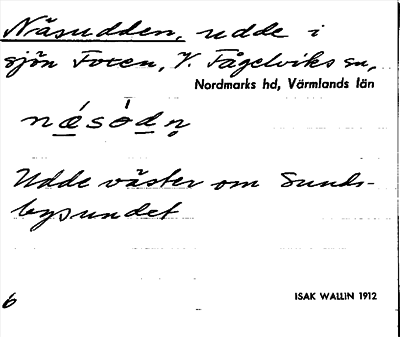 Näsudden, udde i
sjön Foxen, V. Fågelviks sn,
Nordmarks hd, Värmlands län
nǽ̱só̱ḏn̥
Udde väster om Sunds-
bysundet
6 ISAK WALLIN 1912